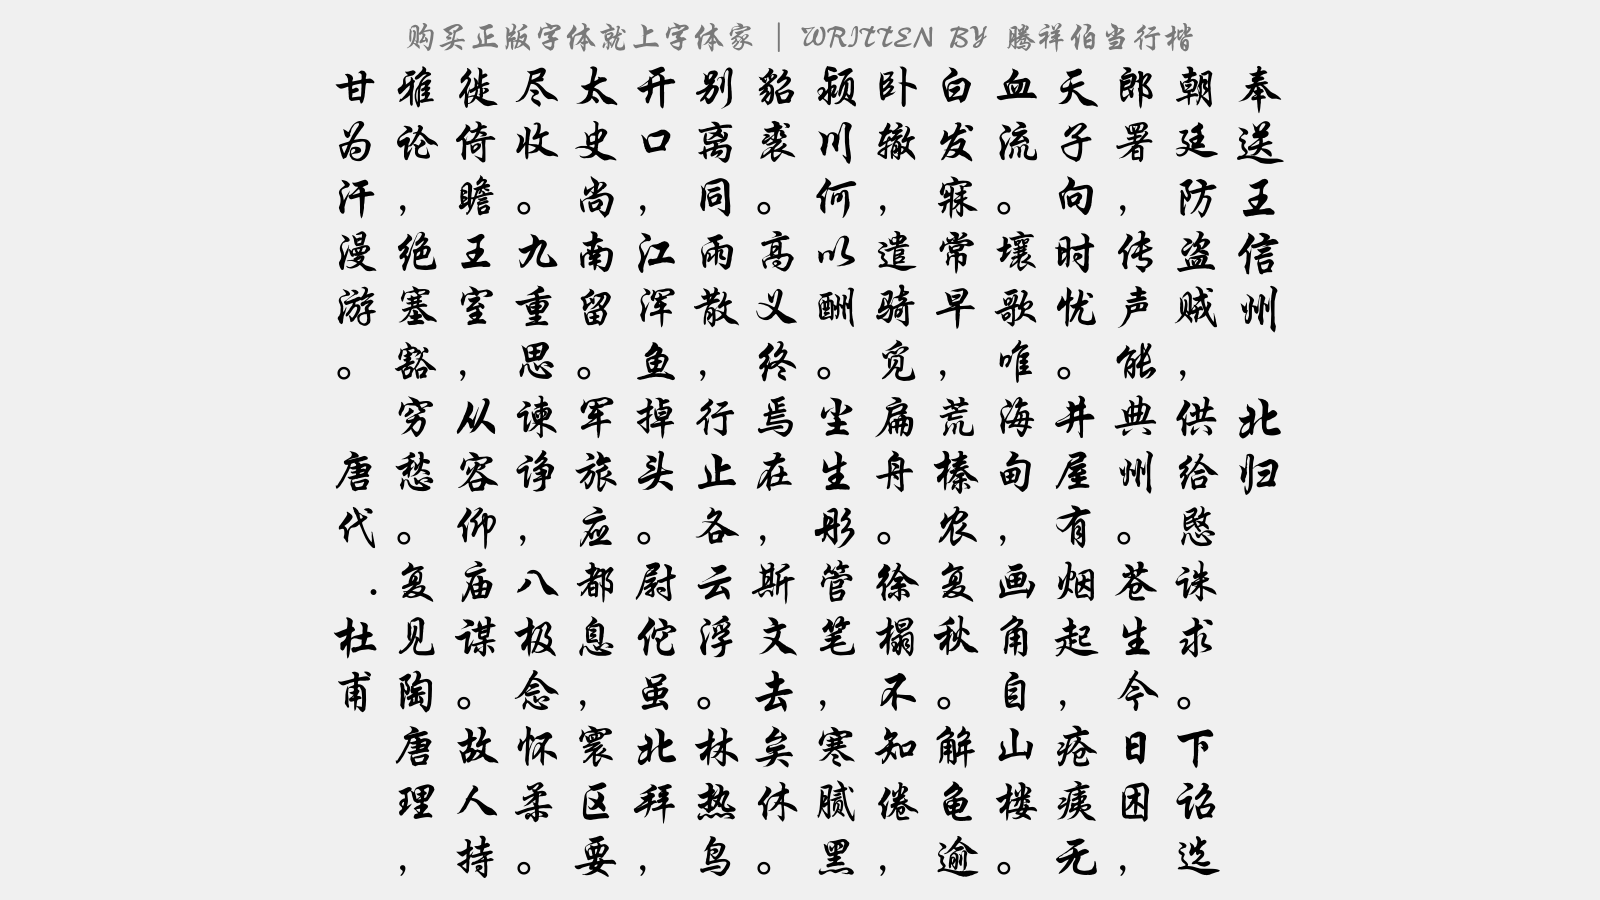 购买正版字体就上字体家 | WRITTEN BY 腾祥伯当行楷
奉送王信州 北归
朝廷防盗贼，供给愍诛求。下诏选
郎署，传声能典州。苍生今日困，
天子向时忧。井屋有烟起，疮痍无
血流。壤歌唯海甸，画角自山楼。
白发寐常早，荒榛农复秋。解龟逾
卧辙，遣骑觅扁舟。徐榻不知倦，
颍川何以酬。尘生彤管笔，寒腻黑
貂裘。高义终焉在，斯文去矣休。
别离同雨散，行止各云浮。林热鸟
开口，江浑鱼掉头。尉佗虽北拜，
太史尚南留。军旅应都息，寰区要
尽收。九重思谏诤，八极念怀柔。
徙倚瞻王室，从容仰庙谋。故人持
雅论，绝塞豁穷愁。复见陶唐理，
甘为汗漫游。 唐代.杜甫